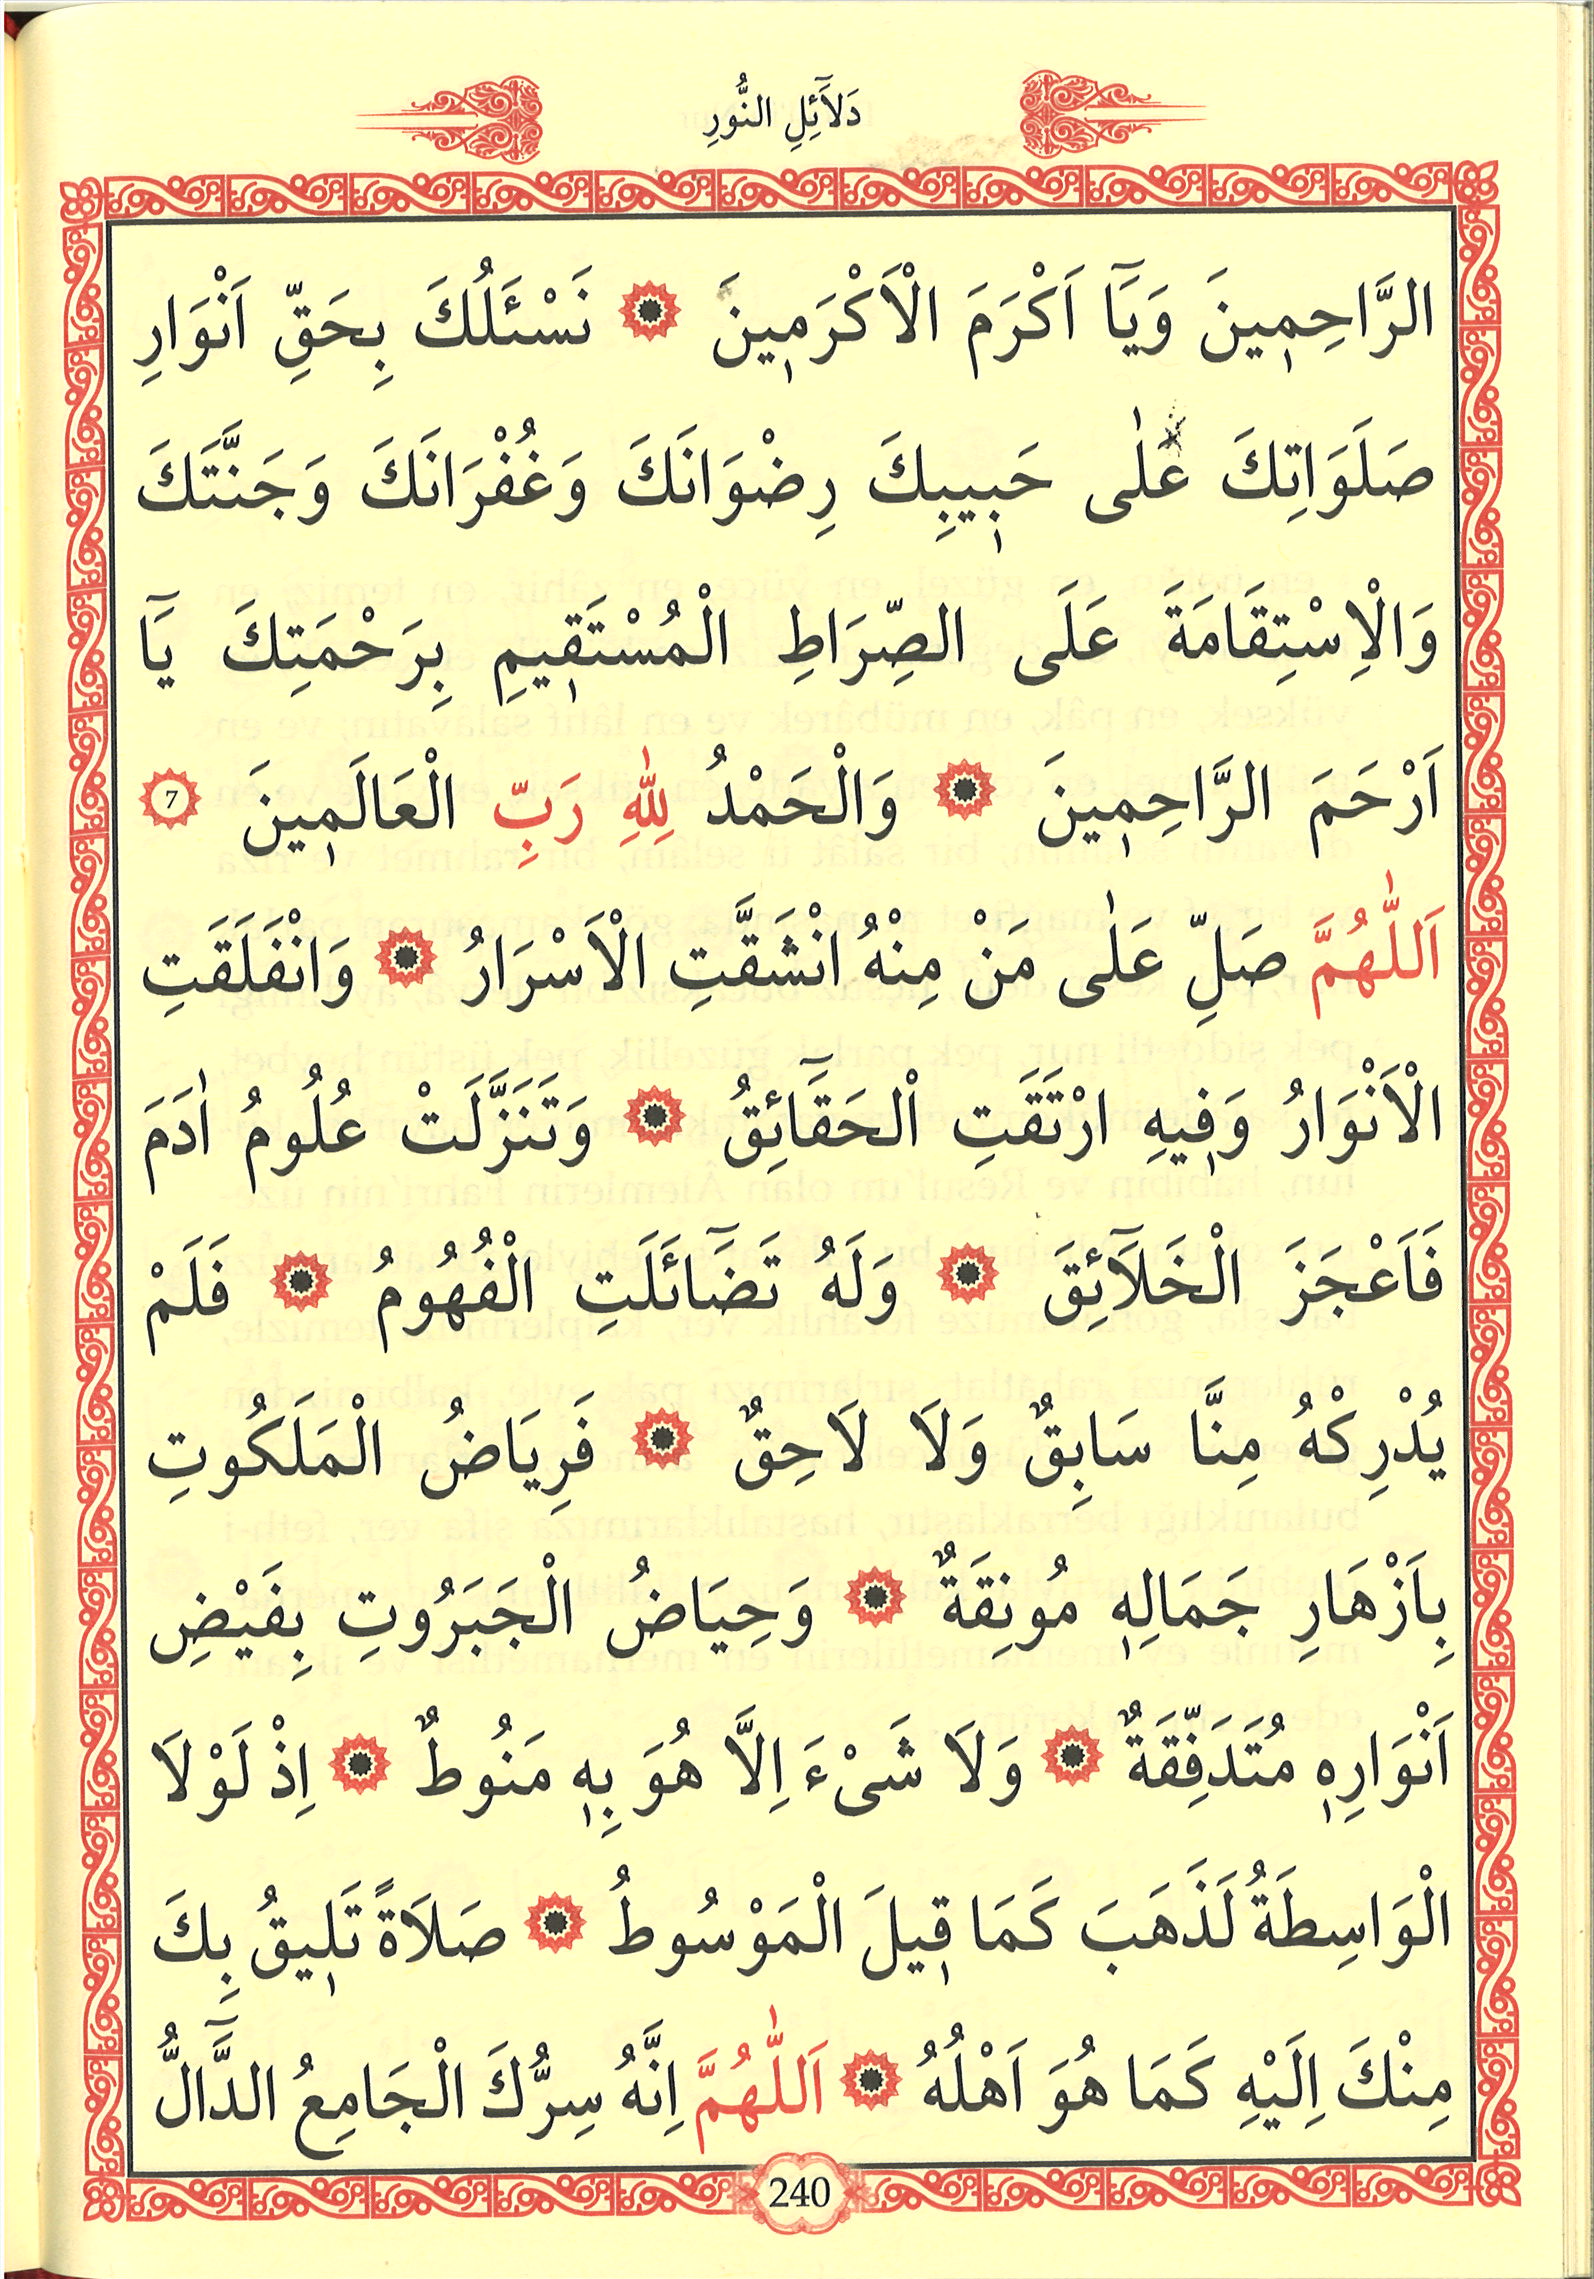 دَلَائِلِ النُّورِ
الرَّاحِمِينَ وَيَٓا اَكْرَمَ الْاَكْرَمِينَ ۞ نَسْئَلُكَ بِحَقِّ اَنْوَارِ
صَلَوَاتِكَ عَلٰى حَبِيبِكَ رِضْوَانَكَ وَغُفْرَانَكَ وَجَنَّتَكَ
وَالْاِسْتِقَامَةَ عَلَى الصِّرَاطِ الْمُسْتَقِيمِ بِرَحْمَتِكَ يَٓا
اَرْحَمَ الرَّاحِمِينَ ۞ وَالْحَمْدُ لِلّٰهِ رَبِّ الْعَالَمِينَ 7
اَللّٰهُمَّ صَلِّ عَلٰى مَنْ مِنْهُ انْشَقَّتِ الْاَسْرَارُ ۞ وَانْفَلَقَتِ
الْاَنْوَارُ وَفِيهِ ارْتَقَتِ الْحَقَٓائِقُ ۞ وَتَنَزَّلَتْ عُلُومُ اٰدَمَ
فَاَعْجَزَ الْخَلَٓائِقَ ۞ وَلَهُ تَضَٓائَلَتِ الْفُهُومُ ۞ فَلَمْ
يُدْرِكْهُ مِنَّا سَابِقٌ وَلَا لَاحِقٌ ۞ فَرِيَاضُ الْمَلَكُوتِ
بِاَزْهَارِ جَمَالِهِ مُونِقَةٌ ۞ وَحِيَاضُ الْجَبَرُوتِ بِفَيْضِ
اَنْوَارِهِ مُتَدَفِّقَةٌ ۞ وَلَا شَىْءَ اِلَّا هُوَ بِهِ مَنُوطٌ ۞ اِذْ لَوْلَا
الْوَاسِطَةُ لَذَهَبَ كَمَا قِيلَ الْمَوْسُوطُ ۞ صَلَاةً تَلِيقُ بِكَ
مِنْكَ اِلَيْهِ كَمَا هُوَ اَهْلُهُ ۞ اَللّٰهُمَّ اِنَّهُ سِرُّكَ الْجَامِعُ الدَّٓالُّ
240